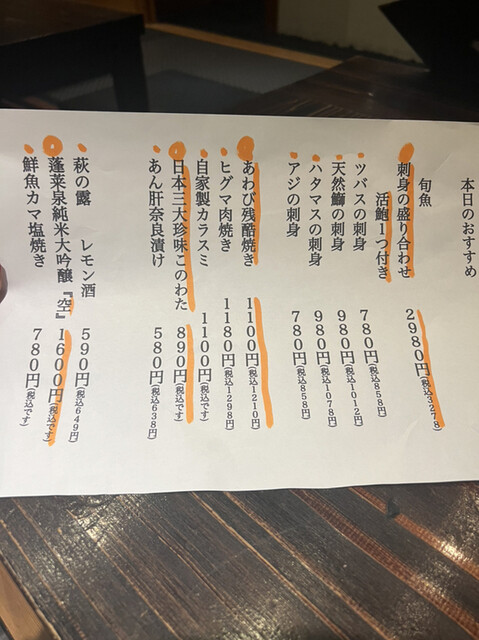 本日のおすすめ
旬魚
刺身の盛り合わせ 2980円(税込3278)
活鮑1つ付き
ツバスの刺身 780円(税込858円)
天然鰤の刺身 980円(税込1012円)
ハタマスの刺身 980円(税込1078円)
アジの刺身 780円(税込858円)
あわび残酷焼き 1100円(税込1210円)
ヒグマ肉焼き 1180円(税込1298円)
自家製カラスミ 1100円(税込です)
日本三大珍味このわた 890円(税込です)
あん肝奈良漬け 580円(税込638円)
萩の露 レモン酒 590円(税込649円)
蓬莱泉純米大吟醸『空』 1600円(税込です)
鮮魚カマ塩焼き 780円(税込です)